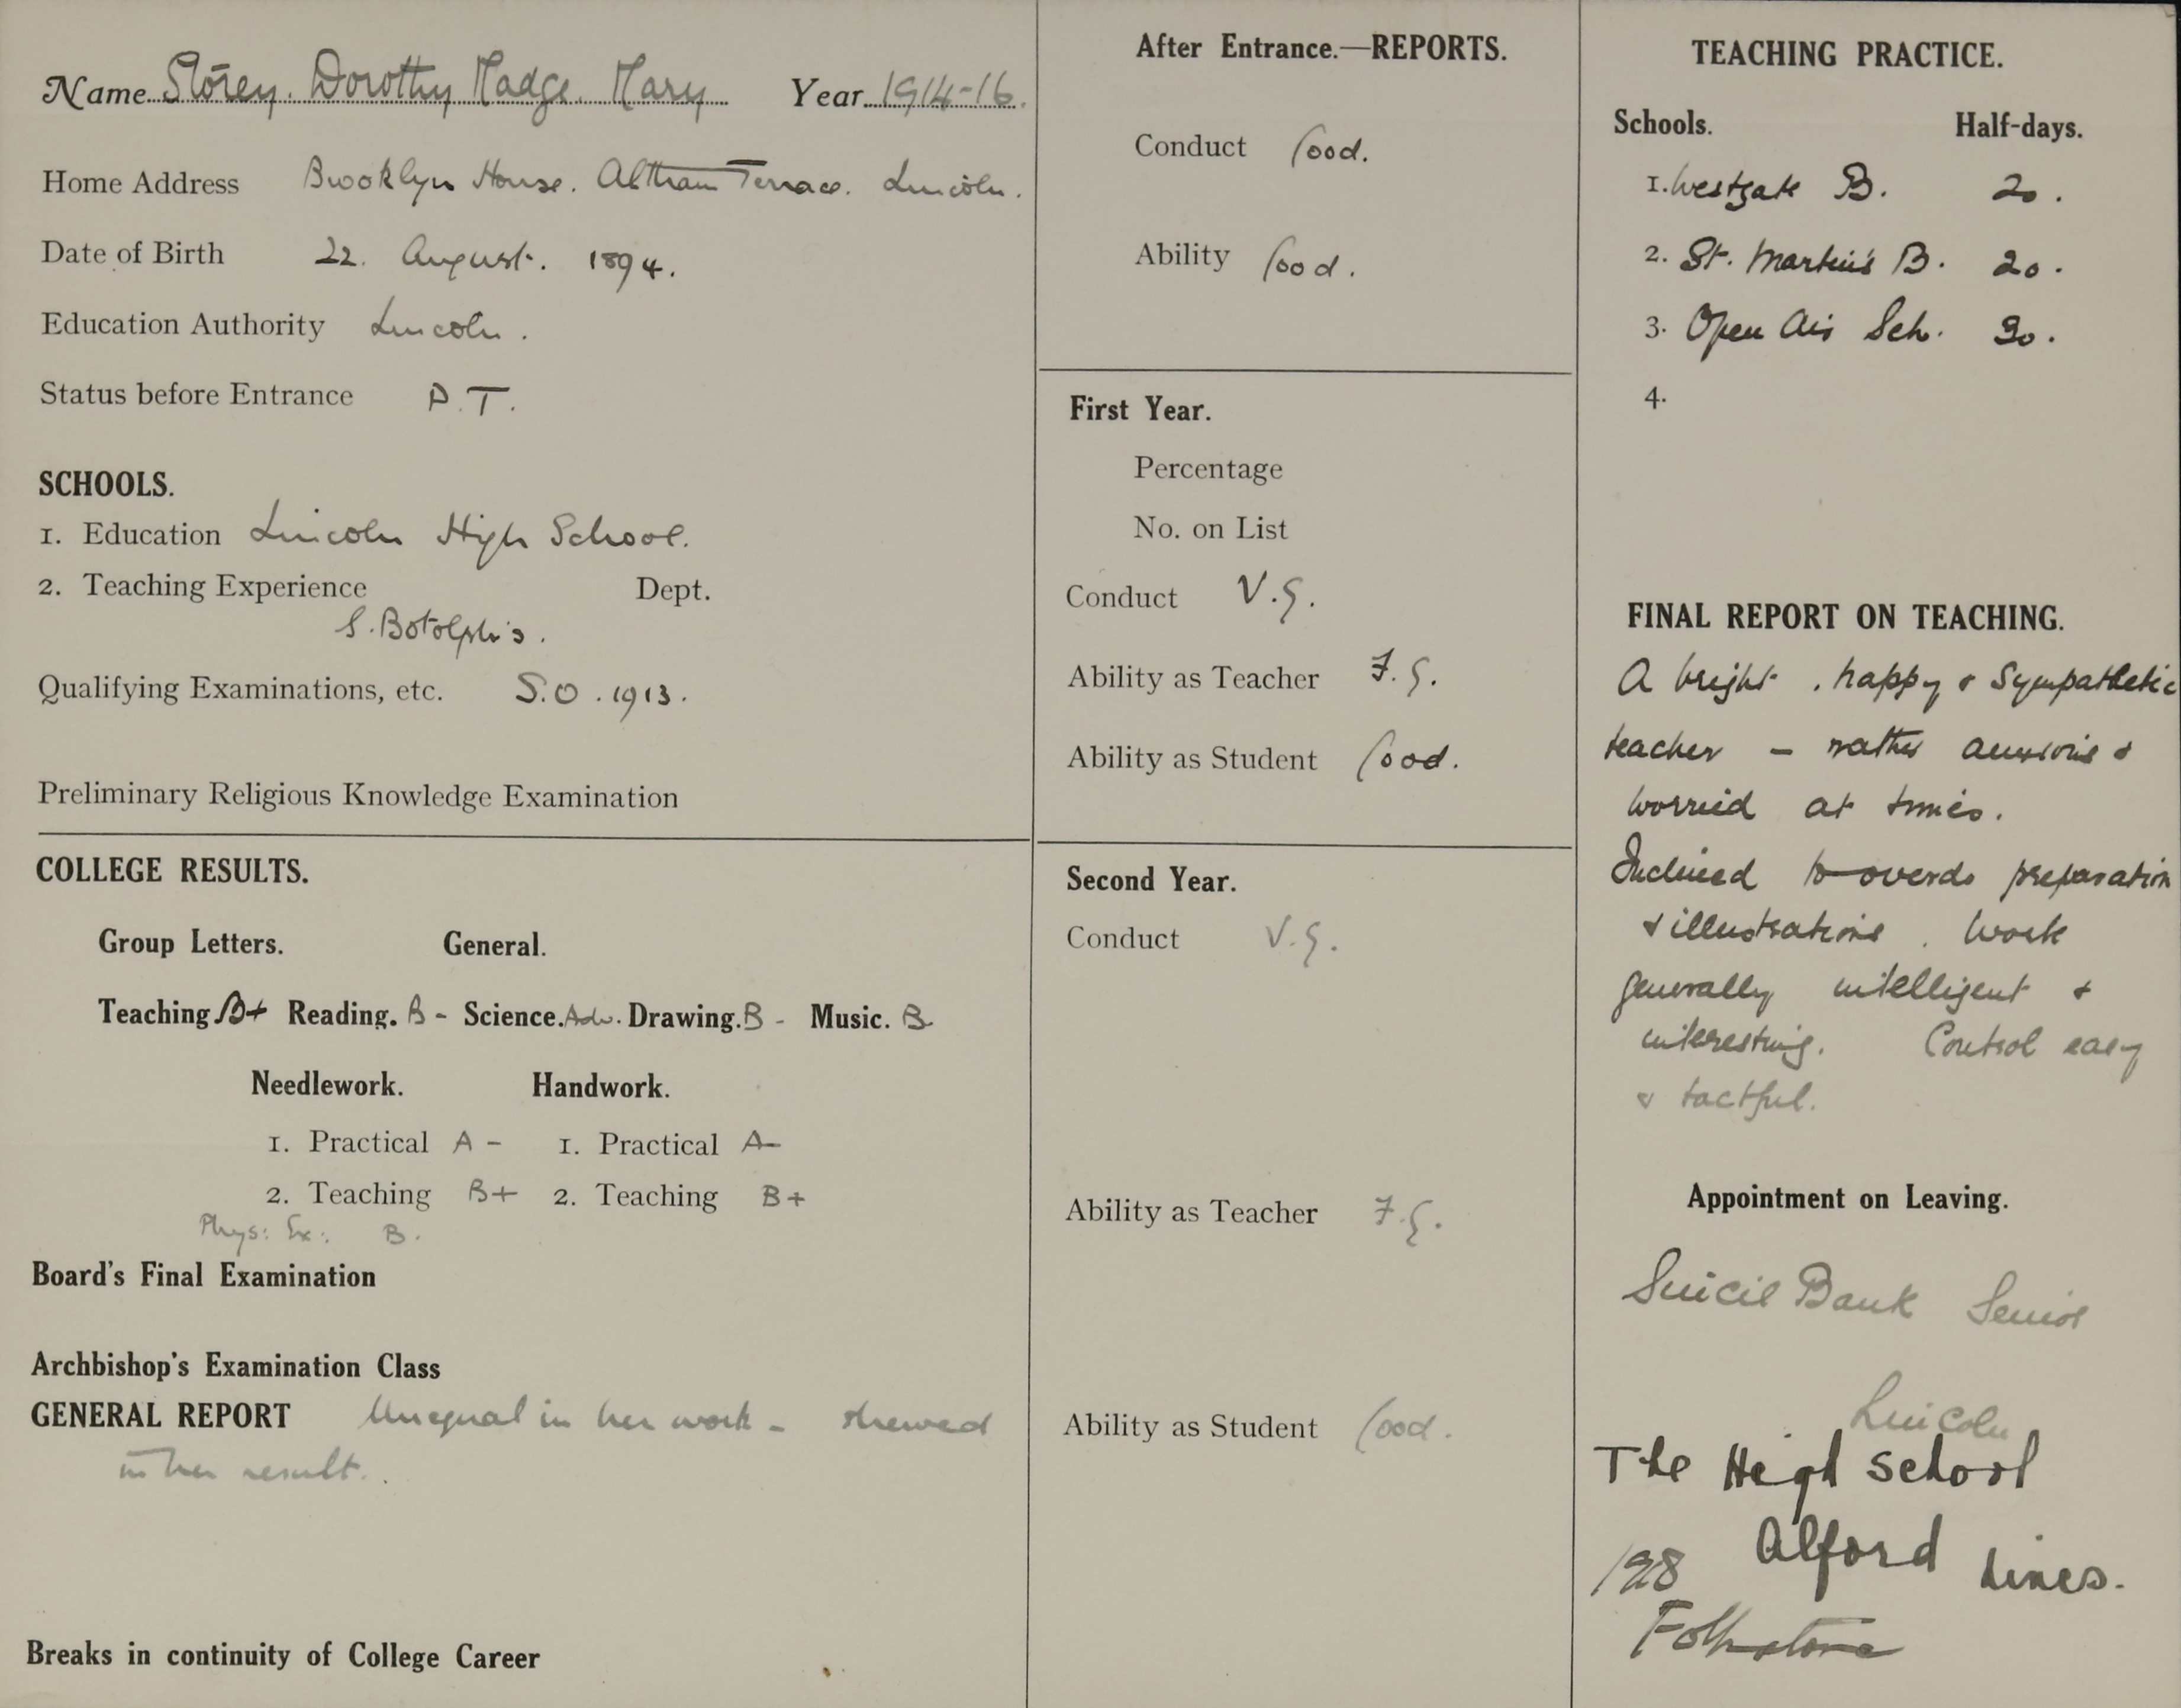 Name Storey. Dorothy Madge. Mary Year 1914-16.
Home Address Brooklyn House. Altham Terrace. Lincoln.
Date of Birth 22. August. 1894.
Education Authority Lincoln.
Status before Entrance P.T.
SCHOOLS.
1. Education Lincoln High School.
2. Teaching Experience Dept.
S. Botolph's.
Qualifying Examinations, etc. S.O. 1913.
Preliminary Religious Knowledge Examination
COLLEGE RESULTS.
Group Letters. General.
Teaching B+ Reading. B - Science. Adv. Drawing. B - Music. B
Needlework. Handwork.
1. Practical A - 1. Practical A-
2. Teaching B+ 2. Teaching B+
Phys: Ex: B.
Board's Final Examination
Archbishop's Examination Class
GENERAL REPORT Unequal in her work - shewed
in her result.
Breaks in continuity of College Career
After Entrance.—REPORTS.
Conduct Good.
Ability Good.
First Year.
Percentage
No. on List
Conduct V.G.
Ability as Teacher F.G.
Ability as Student Good.
Second Year.
Conduct V.G.
Ability as Teacher F.G.
Ability as Student Good.
TEACHING PRACTICE.
Schools. Half-days.
1. Westgate B. 20.
2. St. Martin's B. 20.
3. Open Air Sch. 30.
4.
FINAL REPORT ON TEACHING.
A bright, happy & sympathetic
teacher - rather anxious &
worried at times.
Inclined to overdo preparation
& illustrations. Work
generally intelligent &
interesting. Control easy
& tactful.
Appointment on Leaving.
Sincil Bank Senior
Lincoln
The High School
Alford Lincs.
1928
Folkestone